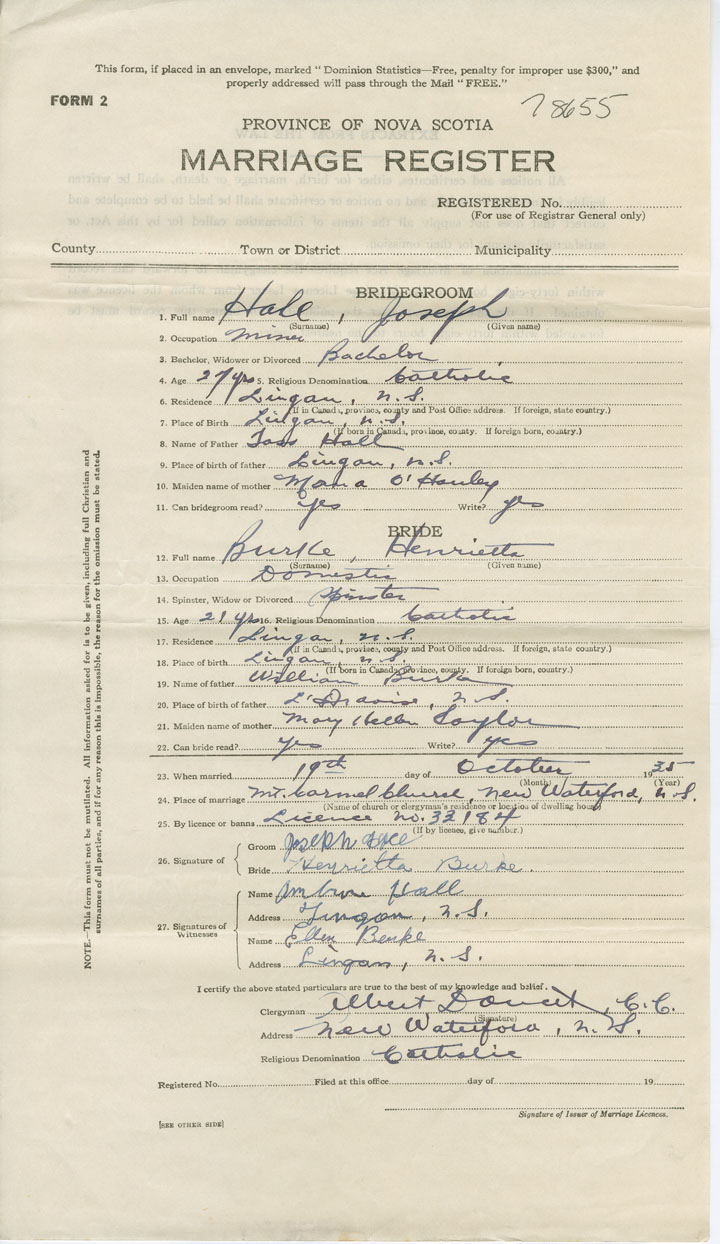 This form, if placed in an envelope, marked " Dominion Statistics—Free, penalty for improper use $300," and
properly addressed will pass through the Mail " FREE."
FORM 2
78655
PROVINCE OF NOVA SCOTIA
MARRIAGE REGISTER
REGISTERED No.
(For use of Registrar General only)
County Town or District Municipality
BRIDEGROOM
1. Full name Hall, Joseph
(Surname) (Given name)
2. Occupation miner
3. Bachelor, Widower or Divorced Bachelor
4. Age 27 yrs 5. Religious Denomination Catholic
6. Residence Lingan, n.S.
(If in Canada, province, county and Post Office address. If foreign, state country.)
7. Place of Birth Lingan, n.S.
(If born in Canada, province, county. If foreign born, country.)
8. Name of Father Hall
9. Place of birth of father Lingan, n.S.
10. Maiden name of mother O'Hanley
11. Can bridegroom read? yes Write? yes
BRIDE
12. Full name Burke, Henrietta
(Surname) (Given name)
13. Occupation Domestic
14. Spinster, Widow or Divorced Spinster
15. Age 21 yrs 16. Religious Denomination Catholic
17. Residence Lingan, n.S.
(If in Canada, province, county and Post Office address. If foreign, state country.)
18. Place of birth Lingan, n.S.
(If born in Canada, province, county. If foreign born, country.)
19. Name of father William Burke
20. Place of birth of father n.S.
21. Maiden name of mother Mary Hellen Taylor
22. Can bride read? yes Write? yes
23. When married 19th day of October 1935
(Month) (Year)
24. Place of marriage Mt. Carmel Church, New Waterford, n.S.
(Name of church or clergyman's residence or location of dwelling house)
25. By licence or banns Licence no. 33184
(If by licence, give number.)
26. Signature of
Groom Joseph Hall
Bride Henrietta Burke.
27. Signatures of Witnesses
Name Hall
Address Lingan, N.S.
Name Ellen Burke
Address Lingan, N.S.
I certify the above stated particulars are true to the best of my knowledge and belief.
Clergyman Albert Doucet, C.C.
(Signature)
Address New Waterford, n.S.
Religious Denomination Catholic
Registered No. Filed at this office day of 19
Signature of Issuer of Marriage Licences.
[SEE OTHER SIDE]
NOTE.—This form must not be mutilated. All information asked for is to be given, including full Christian and
surnames of all parties, and if for any reason this is impossible, the reason for the omission must be stated.